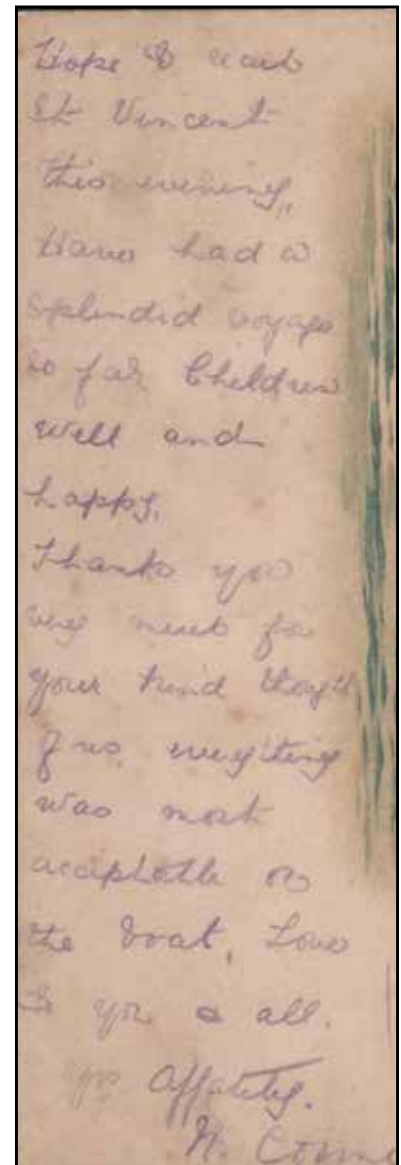 Hope to reach
St Vincent
this evening,
Have had a
splendid voyage
so far Children
well and
happy.
Thank you
very much for
your kind thought
of us, everything
was most
acceptable on
the boat, Love
to you & all.
yrs Affately.